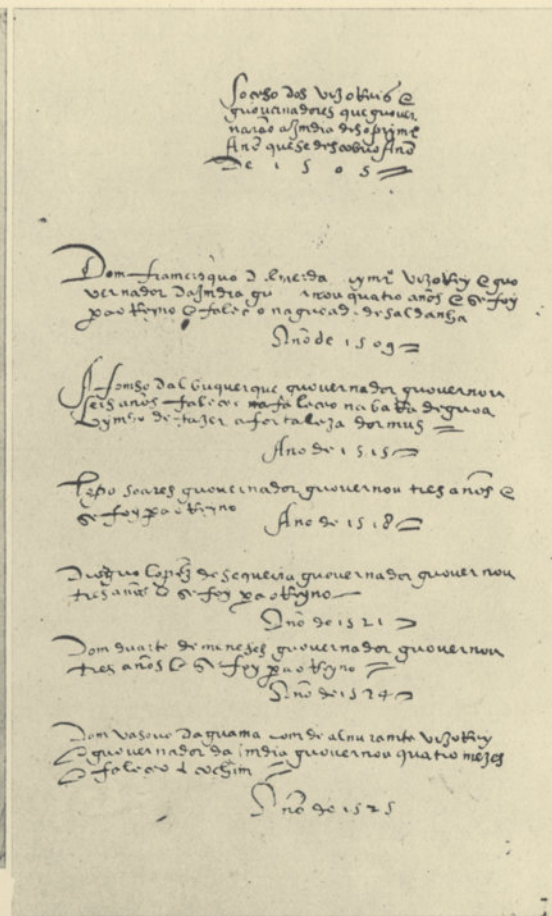 soceso dos vizoReis e
guovernadores que guover
narão a Imdia des o prim.ro
Anno que se descobrio Anno
De 1505
Dom framcisquo D almeida prym.ro vizoRey e guo
vernador da Imdia gu nou quatro años e se foy
pa o Reyno e faleço na aguoada de saldanha
Año de 1509
Afomso dalbuquerque guovernador guovernou
seis años faleceo na baRa de guoa
vymdo de fazer a fortaleza dormus
Ano de 1515
Lopo soares guovernador guovernou tres años e
se foy pa o Reyno
Ano de 1518
Dioguo lopez de sequeira guovernador guovernou
tres años e se foy pa o Reyno
Año de 1521
Dom duarte de meneses guovernador guovernou
tres años e se foy pa o Reyno
Año de 1524
Dom vasquo daguama comde almiramte vizoRey
e guovernador da imdia guovernou quatro mezes
e faleceo e cochim
Año de 1525